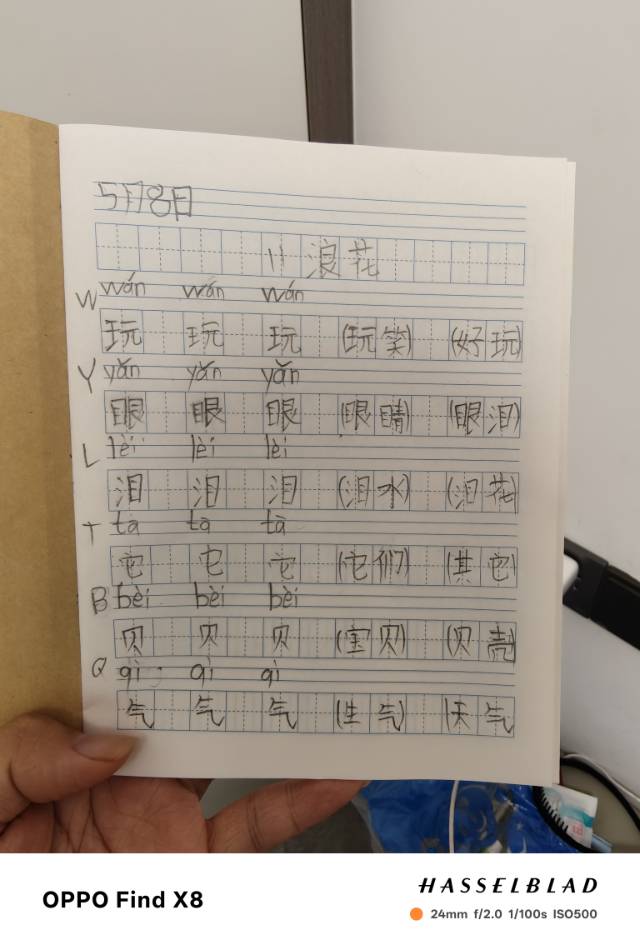 5月8日
11 浪花
W wán wán wán
玩 玩 玩 (玩笑) (好玩)
Y yǎn yǎn yǎn
眼 眼 眼 (眼睛) (眼泪)
L lèi lèi lèi
泪 泪 泪 (泪水) (泪花)
T tā tā tā
它 它 它 (它们) (其它)
B bèi bèi bèi
贝 贝 贝 (宝贝) (贝壳)
Q qì qì qì
气 气 气 (生气) (天气)
OPPO Find X8
HASSELBLAD
24mm f/2.0 1/100s ISO500